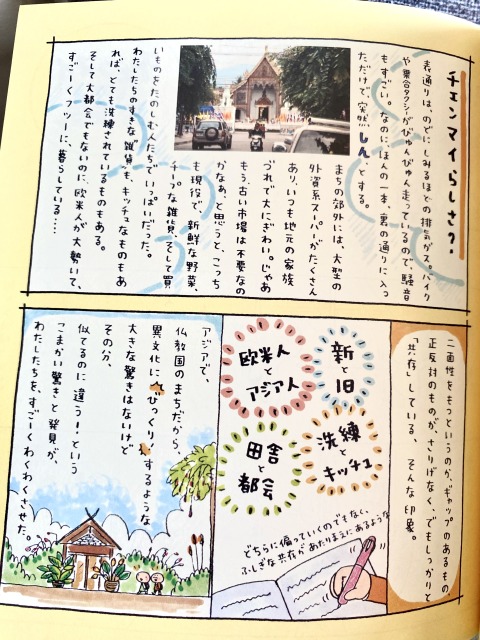 チェンマイらしさ？
表通りは、のどにしみるほどの排気ガス。バイク
や乗合タクシがびゅんびゅん走っているので、騒音
もすごい。なのに、ほんの一本、裏の通りに入っ
ただけで、突然しん、とする。
まちの郊外には、大型の
外資系スーパーがたくさん
あり、いつも地元の家族
づれで大にぎわい。じゃあ
もう、古い市場は不要なの
かなぁ、と思うと、こっち
も現役で、新鮮な野菜、
チープな雑貨、そして買
いものをたのしむ人たちでいっぱいだった。
わたしたちのすきな“雑貨”も、キッチュなものもあ
れば、とても洗練されているものもある。
そして大都会でもないのに、欧米人が大勢いて、
すごーくフツーに、暮らしている……
二面性をもつというのか、ギャップのあるもの、
正反対のものが、さりげなく、でもしっかりと
“共存”している、そんな印象。
新と旧
欧米人とアジア人
洗練とキッチュ
田舎と都会
どちらに偏っていくのでもなく、
ふしぎな共存があたりまえにあるような
アジアで、
仏教国のまちだから、
異文化にびっくり！するような
大きな驚きはないけど
その分、
似てるのに違う！という
こまかい驚きと発見が、
わたしたちを、すごーくわくわくさせた。